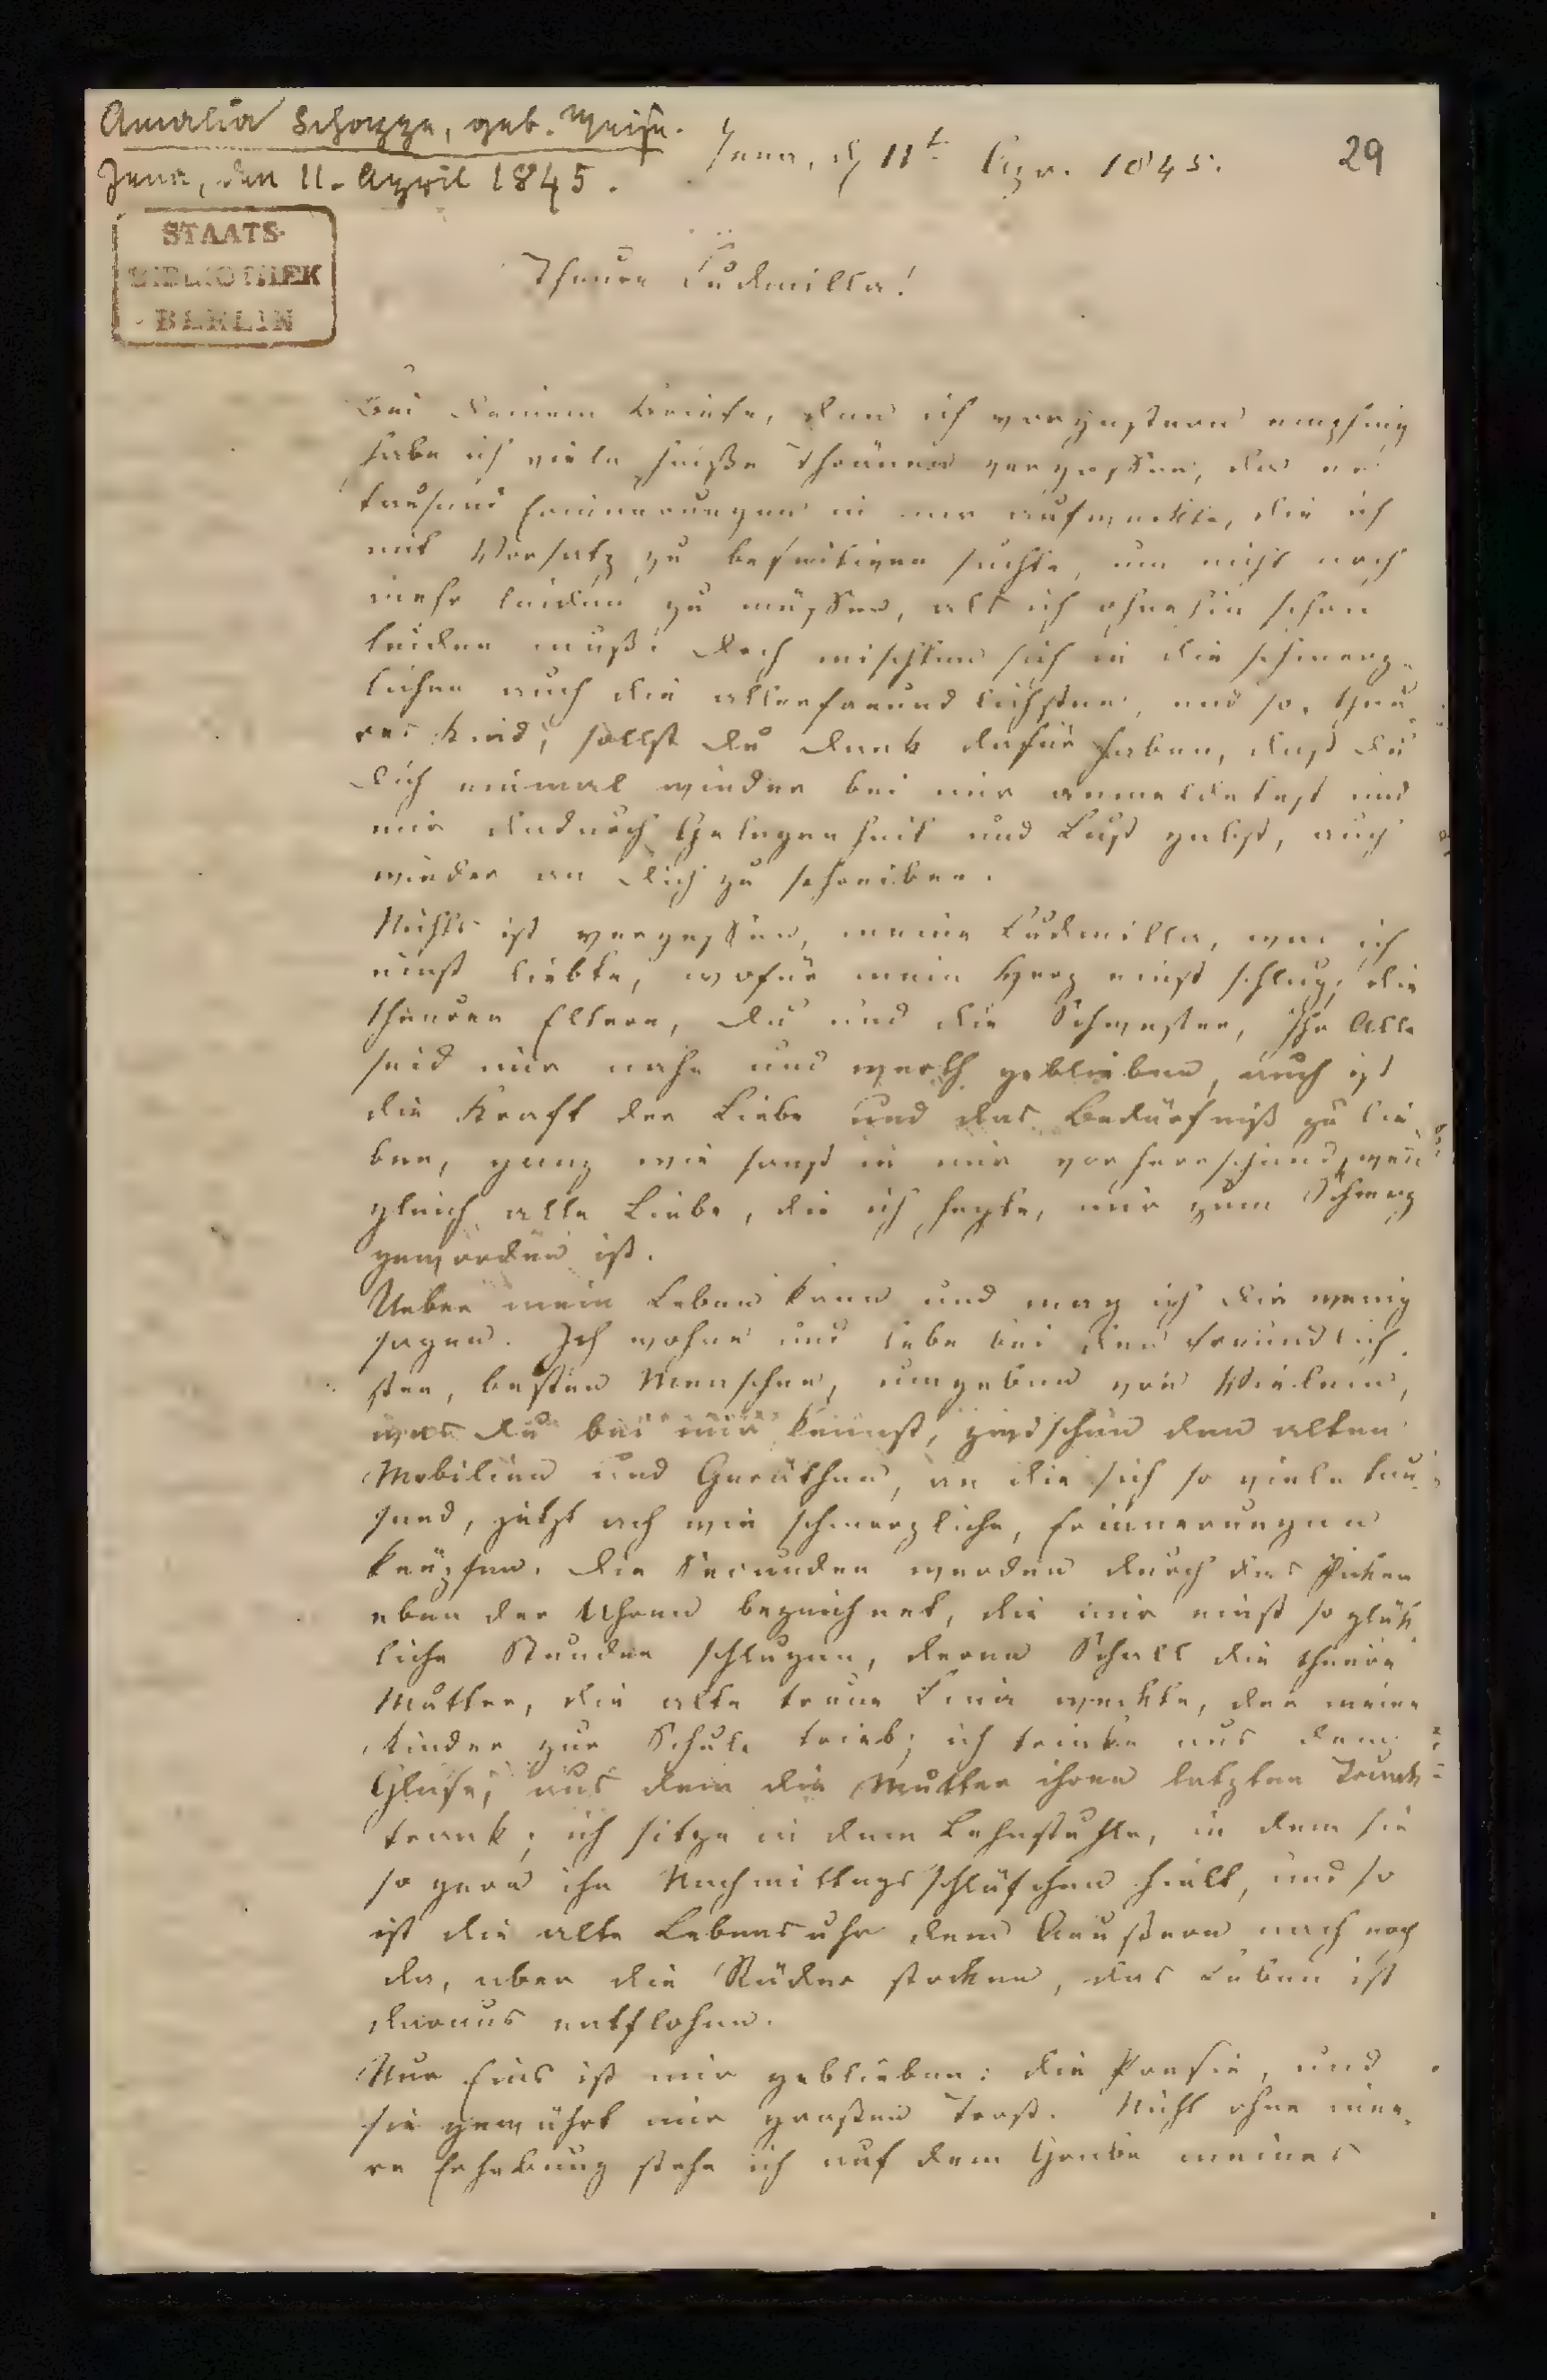 Amalia Schoppe, geb. Weise.
Jena, den 11. April 1845.
Jena, d 11t Apr. 1845.
29
STAATS-
BIBLIOTHEK
BERLIN
Theure Ludmilla!
Bei Deinem Briefe, den ich vorgestern empfing
habe ich viele heiße Thränen vergossen, da er
tausend Erinnerungen in mir aufweckte, die ich
mit Vorsatz zu beseitigen suchte, um nicht noch
mehr leiden zu müssen, als ich ohnehin schon
leiden muß. Doch mischten sich in die schmerz-
lichen auch die allerfreundlichsten, und so, theu-
res Kind, sollst Du Dank dafür haben, daß Du
Dich einmal wieder bei mir anmeldetest und
mir dadurch Gelegenheit und Lust gabst, auch
wieder an Dich zu schreiben.
Nichts ist vergessen, meine Ludmilla, was ich
einst liebte, wofür mein Herz einst schlug; die
theuren Eltern, Du und die Schwester, Ihr Alle
seid mir nahe und werth geblieben, auch ist
die Kraft der Liebe und das Bedürfniß zu lie-
ben, ganz wie sonst in mir vorherrschend, wenn
gleich alle Liebe, die ich hegte, mir zum Schmerz
geworden ist.
Ueber mein Leben kann und mag ich Dir wenig
sagen. Ich wohne und lebe bei den freundlich-
sten, besten Menschen, umgeben von Vielem,
was Du bei mir kennst, zwischen den alten
Mobilien und Geräthen, an die sich so viele tau-
send, jetzt ach wie schmerzliche, Erinnerungen
knüpfen. Die Secunden werden durch das Picken
eben der Uhren bezeichnet, die mir einst so glück-
liche Stunden schlugen, deren Schall die theure
Mutter, die alte treue weckte, der meine
Kinder zur Schule trieb; ich trinke aus dem
Glase, aus dem die Mutter ihren letzten Trunk
trank; ich sitze in dem Lehnstuhle, in dem sie
so gern ihr Nachmittagsschläfchen hielt, und so
ist die alte Lebensuhr dem Aeußern nach noch
da, aber die Räder stocken, das Leben ist
daraus entflohen.
Nur Eins ist mir geblieben: die Poesie, und
sie gewährt mir großen Trost. Nicht ohne inne-
re Erhebung stehe ich auf dem Grabe meines